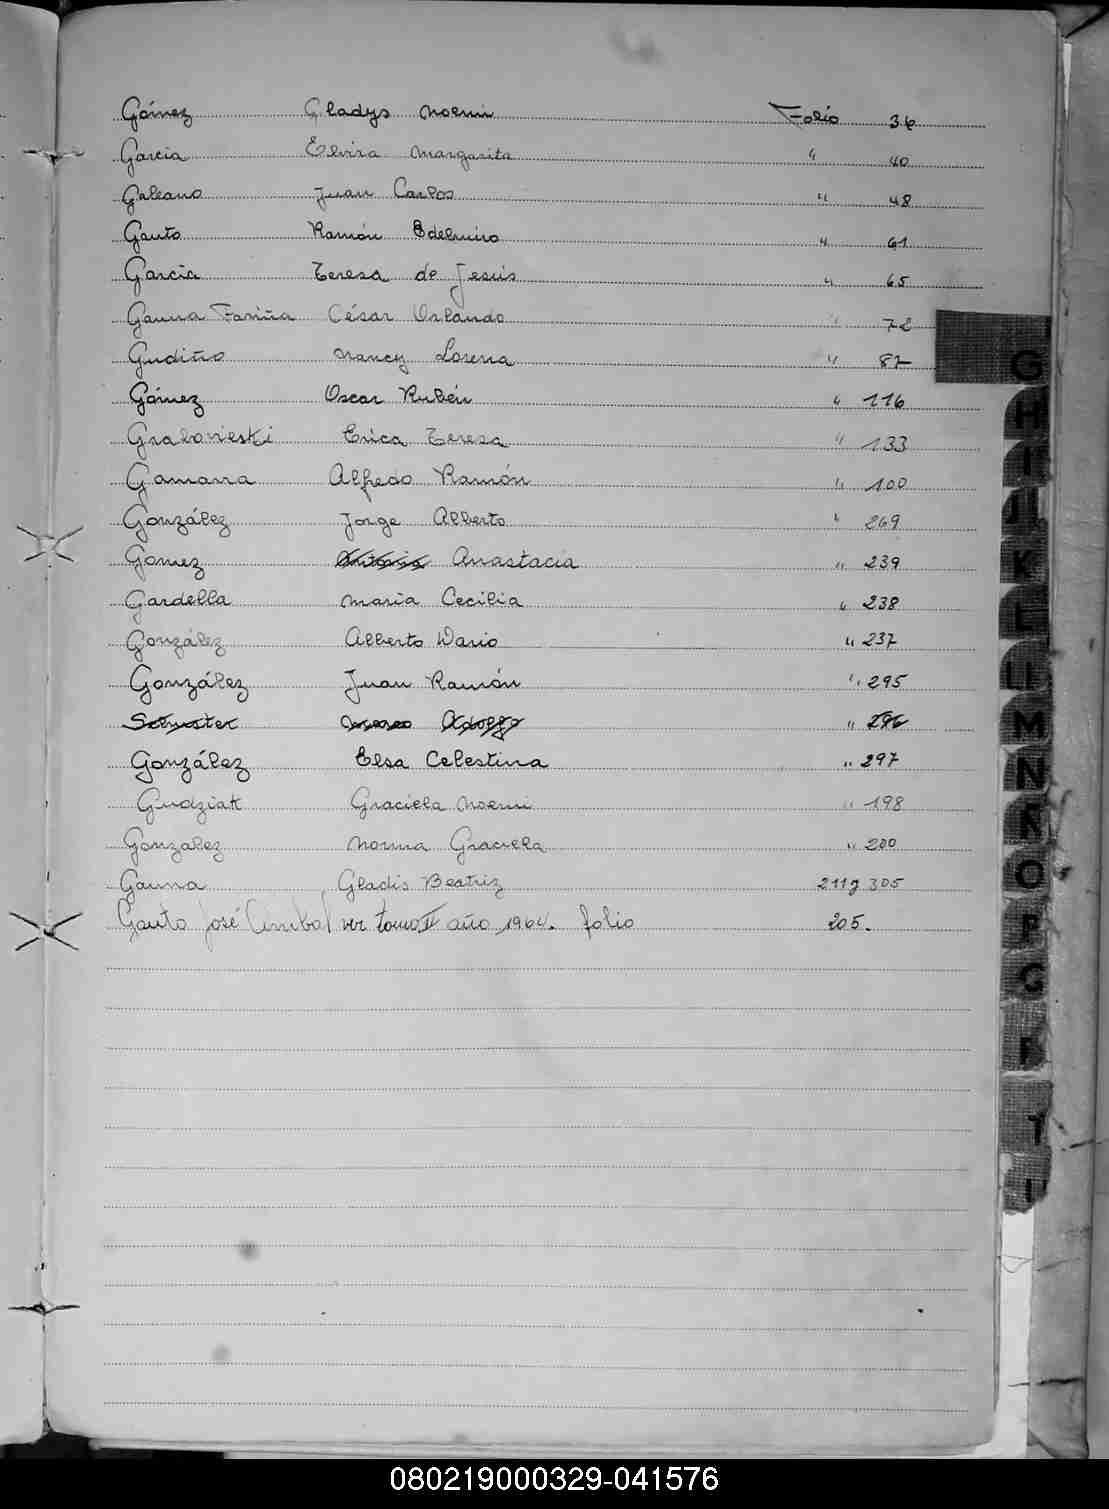 Gómez Gladys Noemi Folio 36
Garcia Elvira Margarita " 40
Galeano Juan Carlos " 48
Gauto Ramón Edelmiro " 61
Garcia Teresa de Jesús " 65
Gauna Fariña César Orlando " 72
Gudiño Nancy Lorena " 87
Gómez Oscar Rubén " 116
Grabovieski Erica Teresa " 133
Gamarra Alfredo Ramón " 100
González Jorge Alberto " 269
Gomez Anastacia " 239
Gardella Maria Cecilia " 238
González Alberto Dario " 237
González Juan Ramón " 295
" 296
González Elsa Celestina " 297
Gudziak Graciela Noemi " 198
Gonzalez Norma Graciela " 200
Gauna Gladis Beatriz 211 y 305
Gauto José Anibal ver tomo II año 1964. folio 205.
G
H
I
J
K
L
LL
M
N
Ñ
O
P
Q
R
T
080219000329-041576